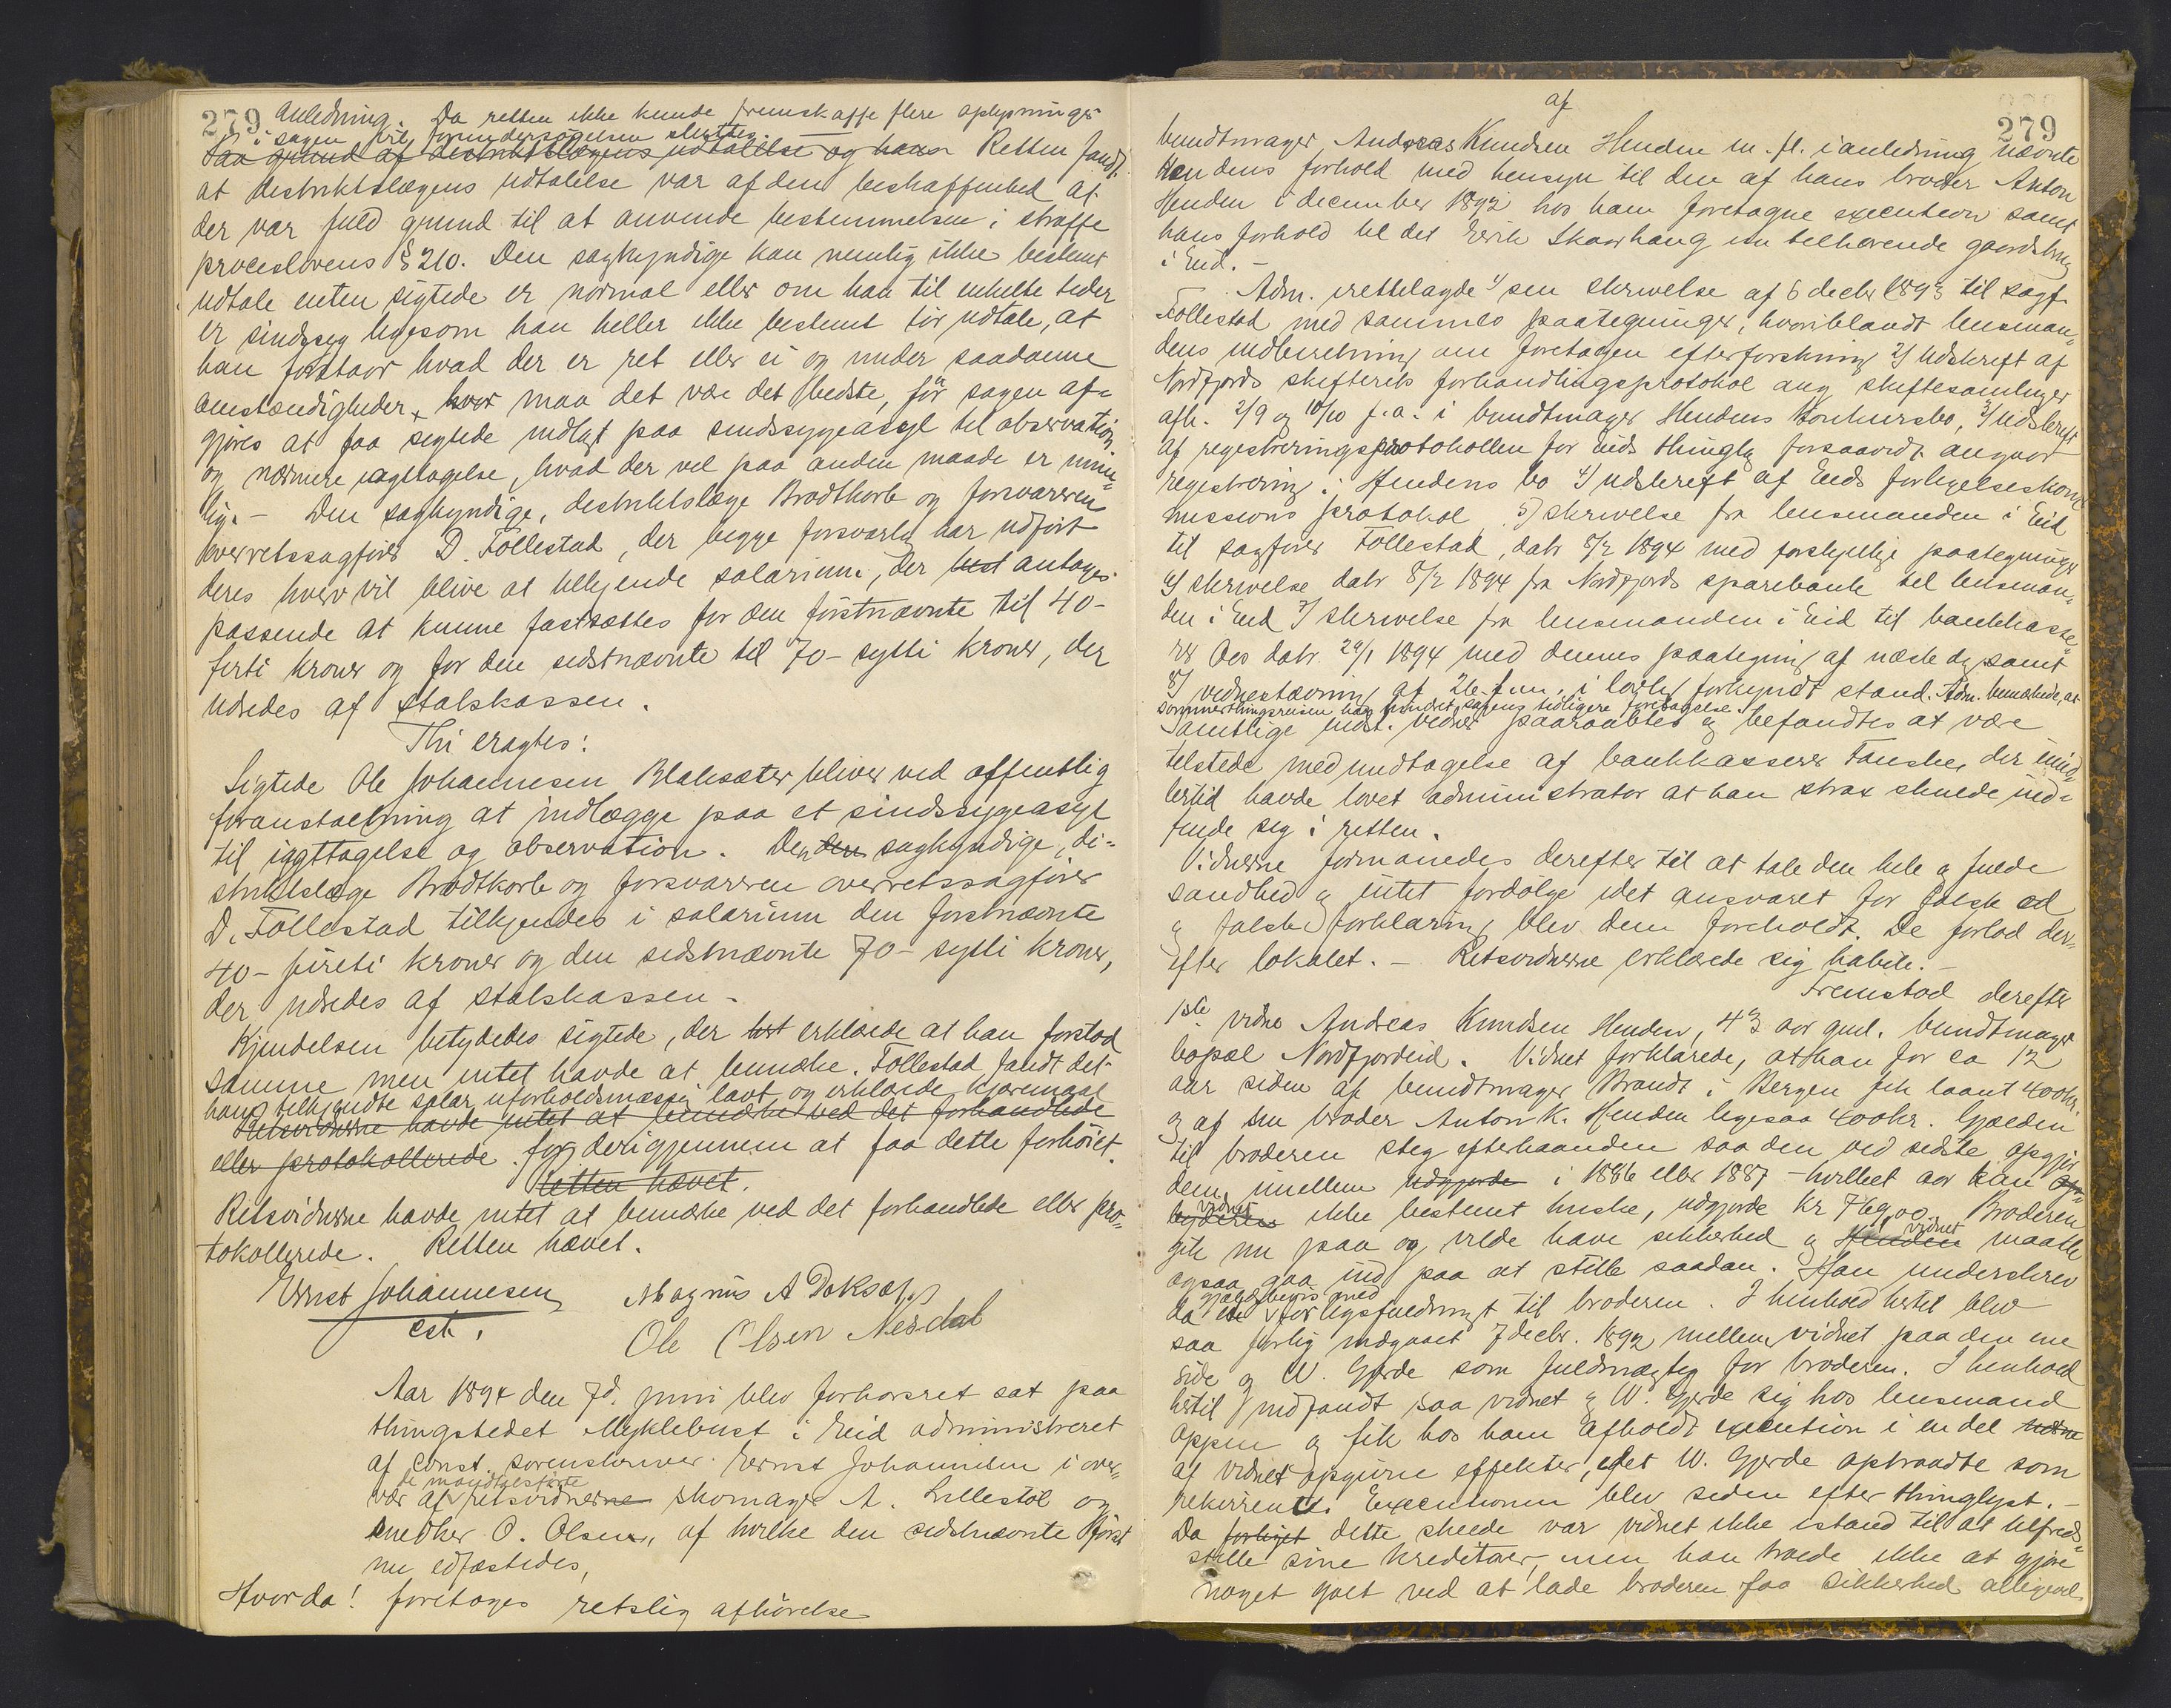 279 anledning. Da retten ikke kunde fremskaffe flere oplysninger
i sagen blev forundersøgelsen sluttet.
Paa grund af distriktslægens udtalelse og hans Retten fandt
at distriktslægens udtalelse var af den beskaffenhed at
der var fuld grund til at anvende bestemmelsen i straffe
proceslovens § 210. Den sagkyndige kan nemlig ikke bestemt
udtale enten sigtede er normal eller om han til enkelte tider
er sindssyg ligesom han heller ikke bestemt tør udtale, at
han forstaar hvad der er ret eller ei og under saadanne
omstændigheder hvor maa det være det bedste, før sagen af-
gjøres at faa sigtede indlagt paa sindssygeasyl til observation
og nærmere iagttagelse, hvad der vel paa anden maade er umu-
lig. – Den sagkyndige, distriktslæge Brodtkorb og forsvareren
overretssagfører D. Follestad, der begge forsvarlig har udført
deres hverv vil blive at tilkjende salarium, der best antages
passende at kunne fastsættes for den førstnævnte til 40-
førti kroner og for den sidstnævnte til 70- sytti kroner, der
udredes af statskassen.
Thi eragtes:
Sigtede Ole Johannesen Blaksæter bliver ved offentlig
foranstaltning at indlægge paa et sindssygeasyl
til iagttagelse og observation. Den den sagkyndige, di-
striktslæge Brodtkorb og forsvareren overretssagfører
D. Follestad tilkjendes i salarium den førstnævnte
40- firti kroner og den sidstnævnte 70- sytti kroner,
der udredes af statskassen –
Kjendelsen betydedes sigtede, der erklærede at han forstod
samme men intet havde at bemærke. Follestad fandt det
ham tilkjendte salær uforholdsmæssig lavt og erklærede kjæremaal
Retsvidnerne havde intet at bemærke ved det forhandlede
eller protokollerede for derigjennem at faa dette forhøiet.
Retten hævet.
Retsvidnerne havde intet at bemærke ved det forhandlede eller pro-
tokollerede. Retten hævet.
Ernst Johannesen Magnus A
cst. Ole Olsen Nesdal
Aar 1894 den 7d. juni blev forhørsret sat paa
thingstedet Myklebust i Eid administreret
af const. sorenskriver Ernst Johannesen i over-
de mandtalsførte
vær af retsvidnerne skomager A. Lillestøl og
snedker O. Olsen, af hvilke den sidstnævnte først
nu edfæstedes,
Hvorda! foretoges retslig afhørelse
af 279
bundtmager Andreas Knudsen Henden m. fl. i anledning nævnte
Hendens forhold med hensyn til den af hans broder Anton
Henden i december 1892 hos ham foretagne execution samt
hans forhold til det Eirik Skaarhaug tilhørende gaardsbrug
i Eid. –
Adm. irettelagde 1) sin skrivelse af 6 decbr 1893 til sagf.
Follestad med sammes paategninger, hvoriblandt lensman-
dens indberetning om foretagen efterforskning 2) Udskrift af
Nordfjords skifterets forhandlingsprotokol ang skiftesamlinger
afh. 2/9 og 10/10 f.a. i bundtmager Hendens konkursbo, 3) Udskrift
af registreringsprotokollen for Eids thinglag forsaavidt angaar
registrering i Hendens bo 4) udskrift af Eids forligelseskom
missions protokol 5) skrivelse fra lensmanden i Eid
til sagfører Follestad, datr 8/2 1894 med forskjellige paategninger
6) skrivelse datr 8/2 1894 fra Nordfjords sparebank til lensman-
den i Eid 7) skrivelse fra lensmanden i Eid til bankkasse-
rer Aas datr. 29/1 1894 med dennes paategning af næste dg samt
8) vidnestævning af 26 f.m. i lovlig forkyndt stand. Adm. bemærkede, at
sommerthingsreisen har hindret sagens tidligere foretagelse.
Samtlige indst. vidner paaraabtes og befandtes at være
tilstede med undtagelse af bankkasserer Fanske, der imid-
lertid havde lovet administrator at han strax skulde ind-
finde sig i retten.
Vidnerne formanedes derefter til at tale den hele og fulde
sandhed og intet fordølge idet ansvaret for falsk ed
og falsk forklaring blev dem foreholdt. De forlod der-
efter lokalet. – Retsvidnerne erklærede sig habile. –
Fremstod derefter
1ste vidne Andreas Knudsen Henden, 43 aar gml. bundtmager
bopæl Nordfjordeid. Vidnet forklarede, at han for ca 12
aar siden af bundtmager Brandt i Bergen fik laant 400 kr.
og af sin broder Anton K. Henden ligesaa 400 kr. Gjælden
til broderen steg efterhaanden saa den ved sidste opgjør
dem imellem udgjorde i 1886 eller 1887 – hvilket aar kan
vidnet
ikke bestemt huske, udgjorde kr 769,00. Broderen
gik nu paa og vilde have sikkerhed og Henden vidnet maatte
ogsaa gaa ind paa at stille saadan. Han underskrev
gjældsbevis med
da en forligsfuldmagt til broderen. I henhold hertil blev
saa forlig indgaaet 7 decbr. 1892 mellem vidnet paa den ene
side og W. Gjerde som fuldmægtig for broderen. I henhold
hertil indfandt saa vidnet og W. Gjerde sig hos lensmand
Oppen og fik hos ham afholdt execution i en del
af vidnet opgivne effekter, idet W. Gjerde optraadte som
rekvirent. Executionen blev siden efter thinglyst. –
Da forliget dette skede var vidnet ikke istand til at tilfreds-
stille sine kreditorer, men han troede ikke at gjøre
noget galt ved at lade broderen faa sikkerhed alligevel.